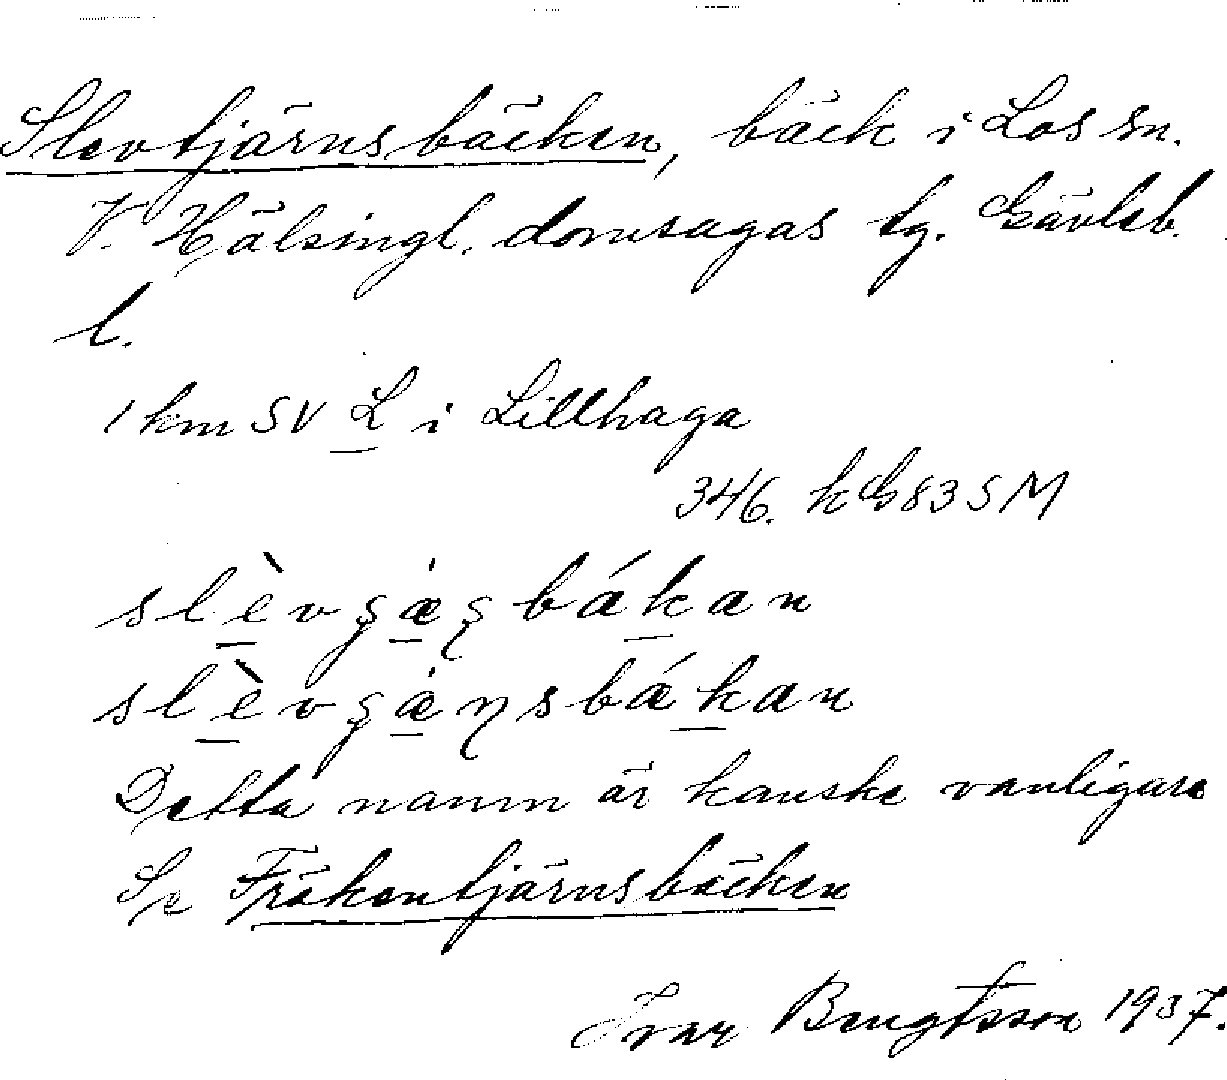 Slevtjärnsbäcken, bäck i Los sn.
V. Hälsingl. domsagas tg. Gävleb.
l.
1 km SV L i Lillhaga
346. k G 83 S M
Detta namn är kanske vanligare
Se Fräkentjärnsbäcken
Ivar Bengtsson 1937.